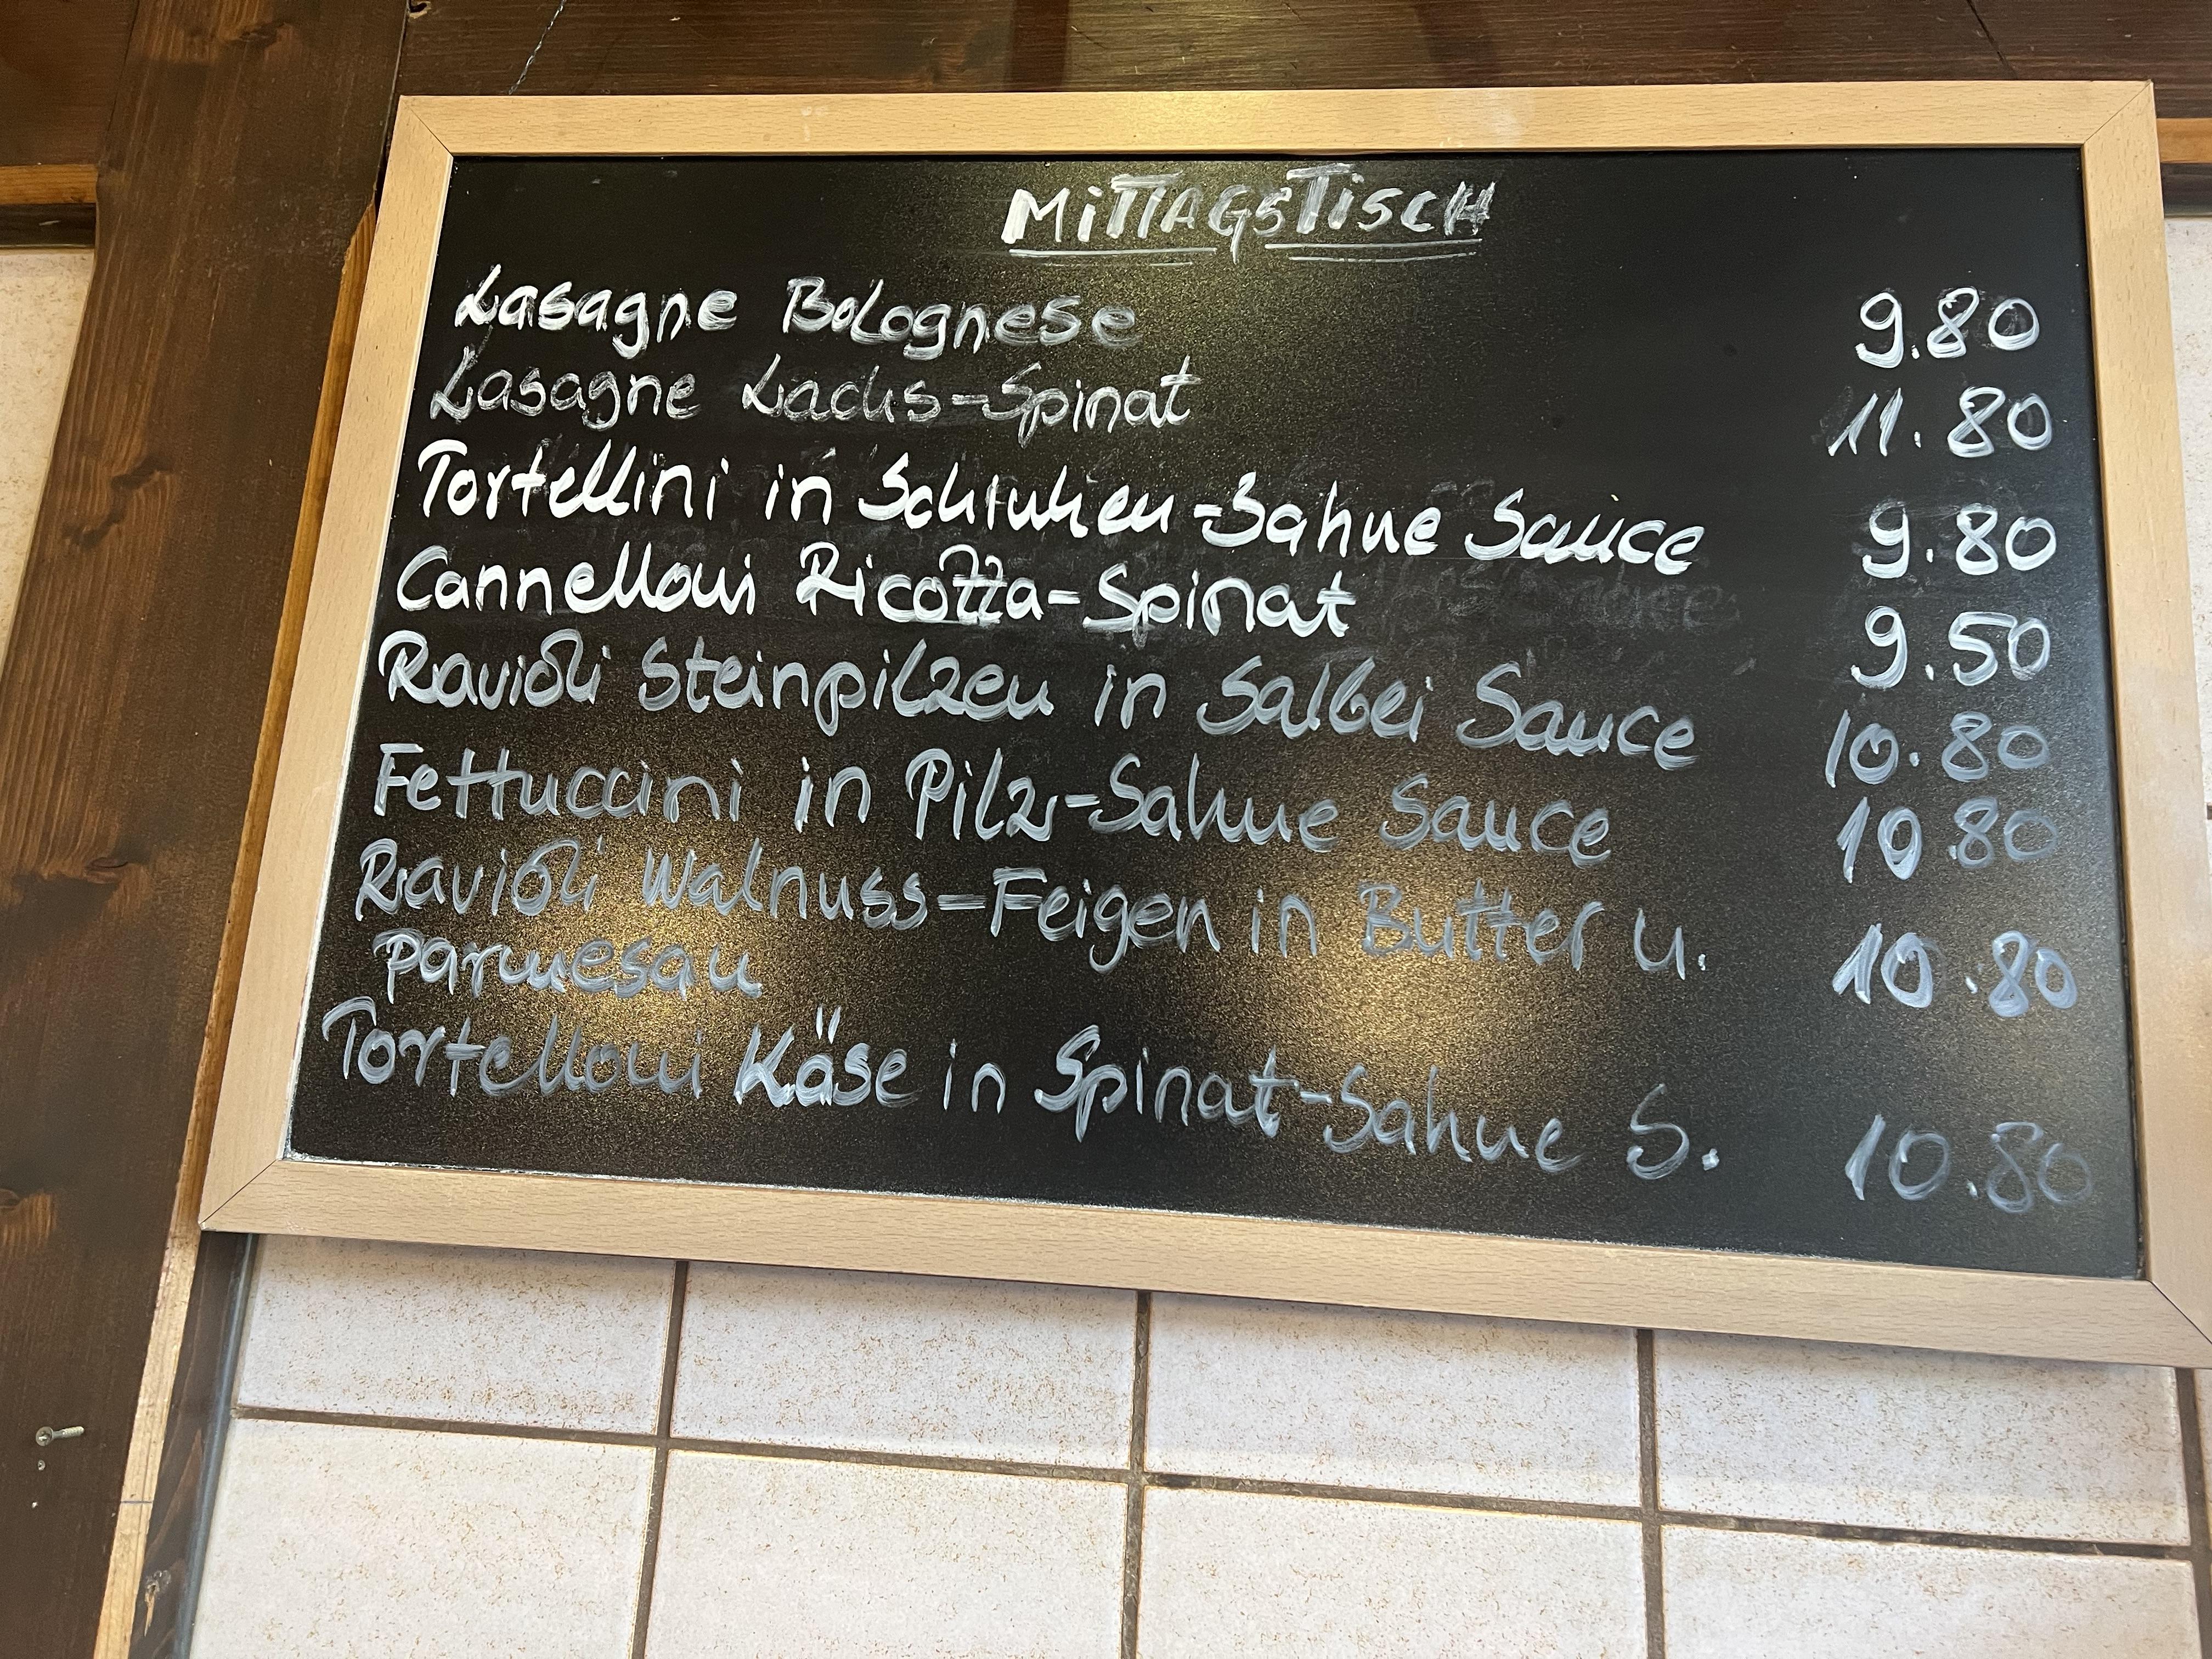 MiTTAGSTiSCH
Lasagne Bolognese 9.80
Lasagne Lachs-Spinat 11.80
Tortellini in Schinken-Sahne Sauce 9.80
Cannelloni Ricotta-Spinat 9.50
Ravioli Steinpilzen in Salbei Sauce 10.80
Fettuccini in Pilz-Sahne Sauce 10.80
Ravioli Walnuss-Feigen in Butter u. 10.80
Parmesan
Tortelloni Käse in Spinat-Sahne S. 10.80